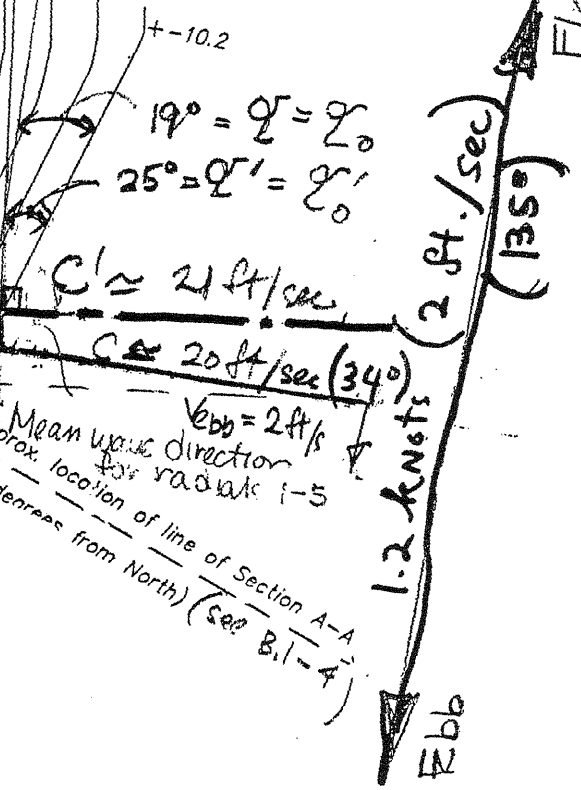 +-10.2
19° = α = α₀
25° = α' = α₀'
C' ≃ 21 ft/sec
C ≅ 20 ft/sec (34°)
Vebb = 2 ft/s
Mean wave direction
for radials 1-5
location of line of Section A-A
degrees from North) (see B.1-4)
1.2 kNots (2 ft./sec)
(135°)
Ebb